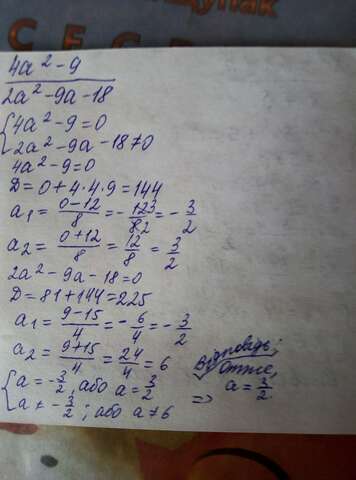 щупак
C E C
4a² - 9
2a² - 9a - 18
4a² - 9 = 0
2a² - 9a - 18 ≠ 0
4a² - 9 = 0
D = 0 + 4 · 4 · 9 = 144
a₁ = (0 - 12)/8 = - 12/8 = - 3/2
a₂ = (0 + 12)/8 = 12/8 = 3/2
2a² - 9a - 18 = 0
D = 81 + 144 = 225
a₁ = (9 - 15)/4 = - 6/4 = - 3/2
a₂ = (9 + 15)/4 = 24/4 = 6
{ a = - 3/2, або a = 3/2
a ≠ - 3/2; або a ≠ 6
Відповідь:
Отже,
=> a = 3/2